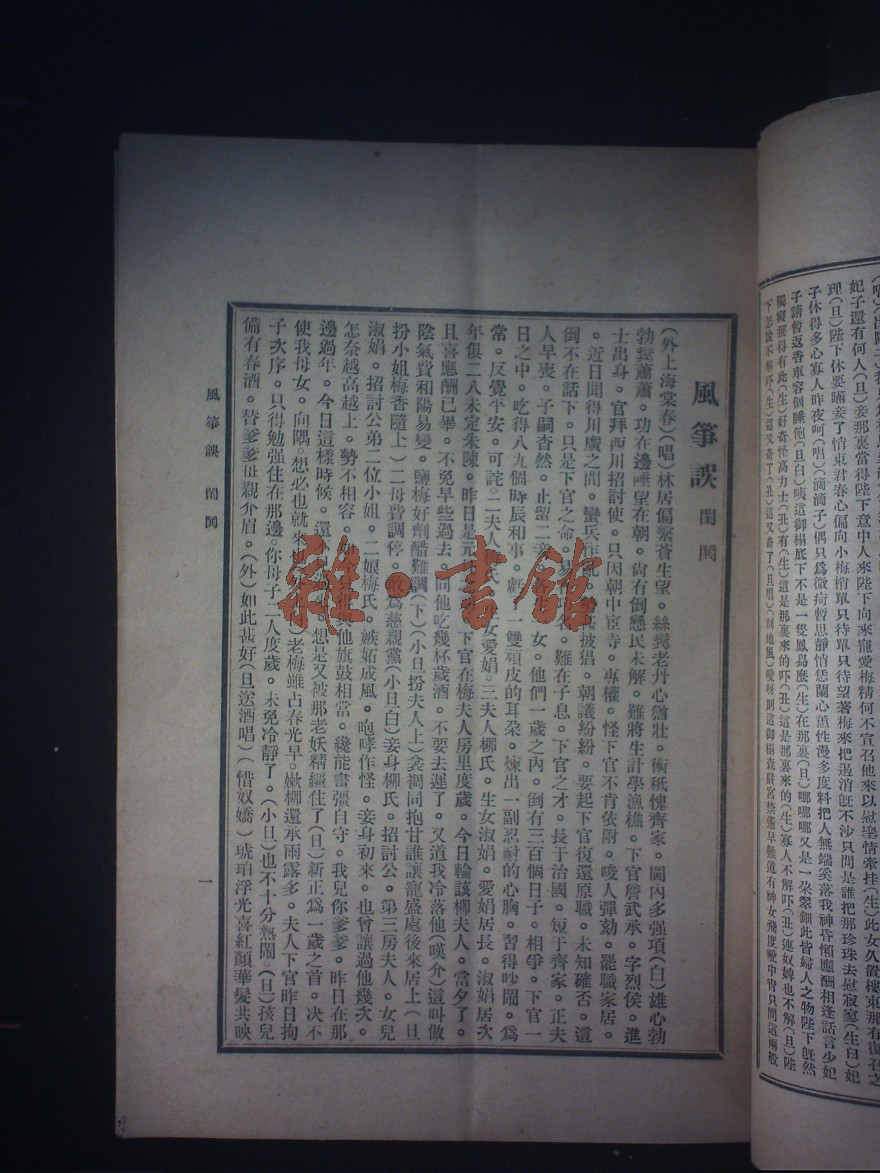 風箏誤 閨鬨
(外上海棠春)(唱)林居偏繫蒼生望。絲鬢老丹心猶壯。術祗愧齊家。閫內多强項(白)雄心勃
勃鬢蕭蕭。功在邊陲望在朝。尙有倒懸民未解。難將生計學漁樵。下官詹武承。字烈侯。進
士出身。官拜西川招討使。只因朝中宦寺。專權。怪下官不肯依附。唆人彈劾。罷職家居。
。近日聞得川廣之間。蠻兵作亂。披猖。朝議紛紛。要起下官復還原職。未知確否。這
倒不在話下。只是下官之命。易名。難在子息。下官之才。長于治國。短于齊家。正夫
人早喪。子嗣杳然。止留二妾。女。他們一歲之內。倒有三百個日子。相爭。下官一
日之中。吃得八九個時辰和事。一雙頑皮的耳朶。煉出一副忍耐的心胸。習得吵鬧。爲
常。反覺平安。可詫。二夫人氏。女愛娟。三夫人柳氏。生女淑娟。愛娟居長。淑娟居次
年俱二八未定朱陳。昨日是元下官在梅夫人房里度歲。今日輪該柳夫人。當夕了。
且喜應酬已畢。不免早些過去。同他吃幾杯歲酒。不要去遲了。又道我冷落他(嘆介)這叫做
陰氣費和陽易變。鹽梅好劑醋難調(下)(小旦扮夫人上)衾裯同抱甘誰讓寵盛處後來居上(旦
扮小姐梅香隨上)二母費調停。敢爲慈親黨(小旦白)妾身柳氏。招討公。第三房夫人。女兒
淑娟。招討公第二位小姐。二娘梅氏。嫉妬成風。咆哮作怪。妾身初來。也曾讓過他幾次。
怎奈越高越上。勢不相容。他旗鼓相當。纔能畫彊自守。我兒你爹爹。昨日在那
邊過年。今日這樣時候。還想是又被那老妖精纏住了(旦)新正爲一歲之首。決不
使我母女。向隅。想必也就來)老梅雖占春光早。嫩柳還承雨露多。夫人下官昨日拘
子次序。只得勉强住在那邊。你母子二人度歲。未免冷靜了。(小旦)也不十分熱鬧。(旦)孩兒
備有春酒。替爹爹母親介眉。(外)如此甚好(旦送酒唱)(惜奴嬌)琥珀浮光喜紅顏華髮共映
風箏誤 閨鬨
一
雜·書館
妃子還有何人(旦)妾那裏當得陛下意中人來陛下向來寵愛梅精何不宣召他來以慰聖情牽挂(生)此女久置樓東那有復召之
理(旦)陛下休要瞞妾了悄東君春心偏向小梅梢單只待單只待望著梅來把渴消旣不沙只問是誰把那珍珠去慰寂寥(生白)妃
子休得多心寡人昨夜呵(唱)(滴滴子)偶只爲微疴暫思靜悄恁蘭心蕙性漫多度料把人無端奚落我神昏懶應酬相逢話言少妃
子請暫返香車容個睡飽(旦白)咦這御榻底下不是一隻鳳舃麽(生)在那裏(旦)哪哪哪又是一朶翠鈿此皆婦人之物陛下旣然
獨寢那得有此(生)好奇怪高力士(丑)有(生)這是那裏來的吓(丑)這是那裏來的(生)寡人不解吓(丑)連奴婢也不解(旦)陛